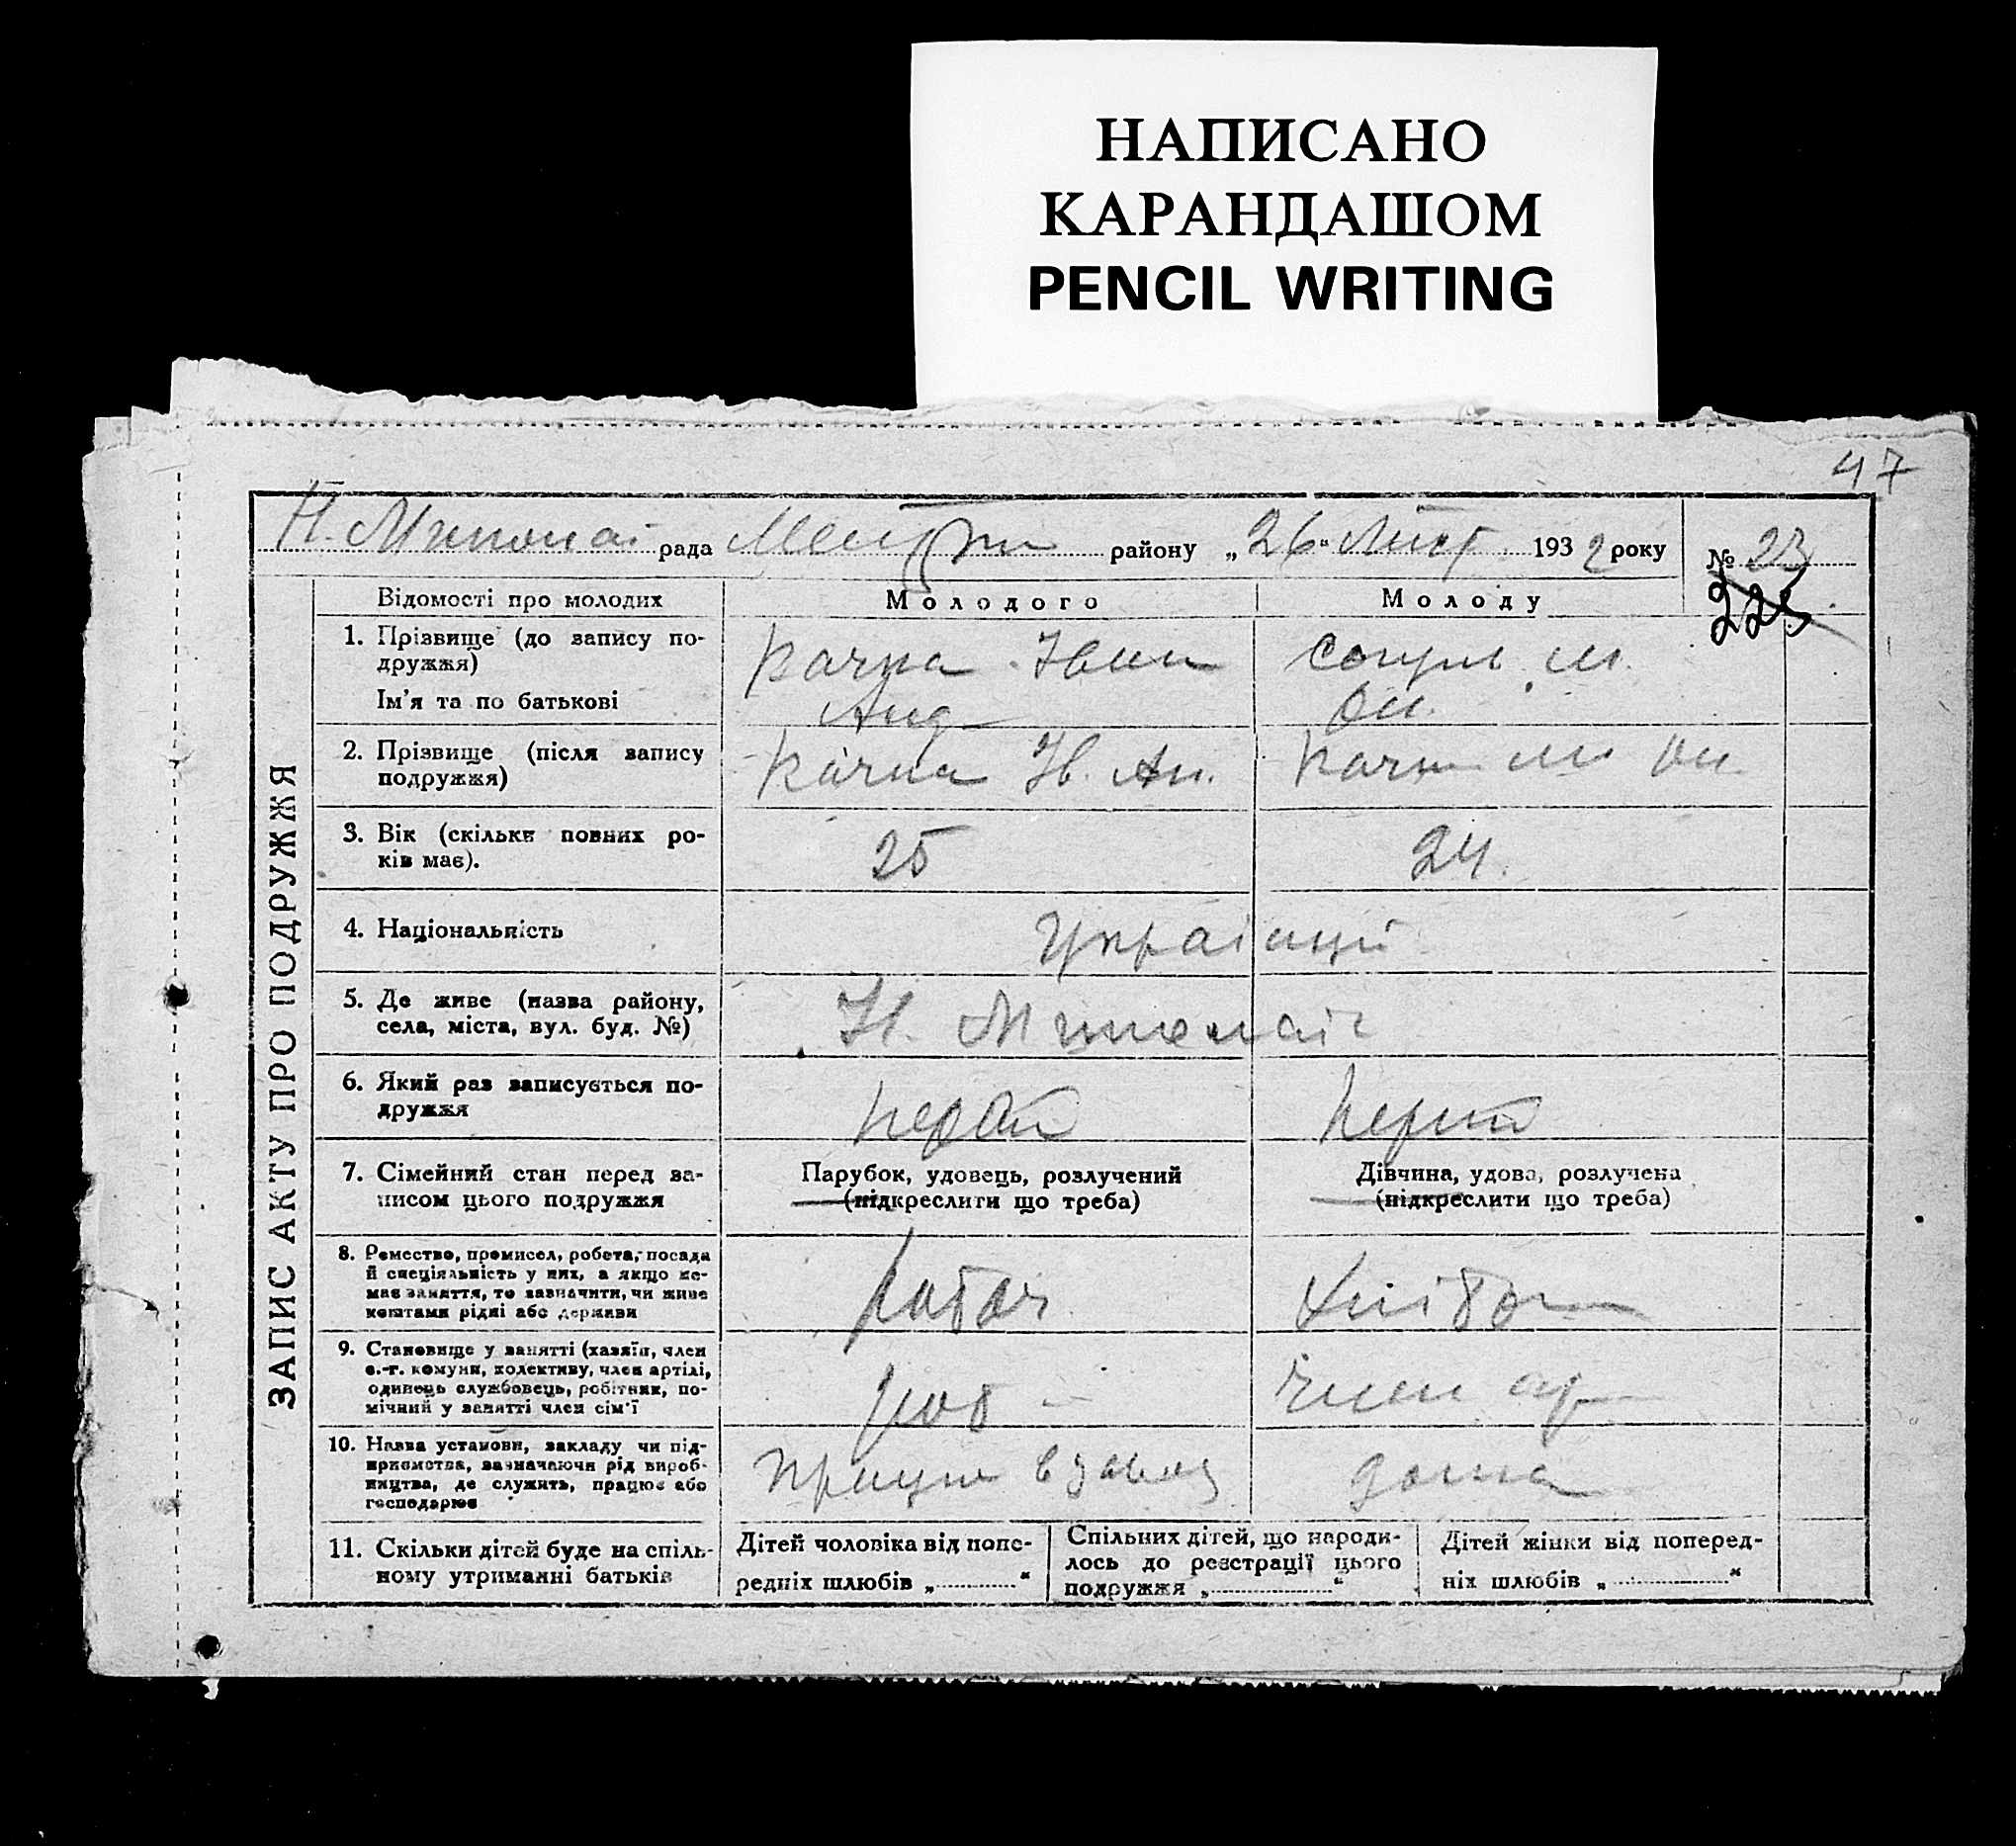 НАПИСАНО
КАРАНДАШОМ
PENCIL WRITING
47
Н. Миколаї рада району „26" Лист 1932 року № 23
223
ЗАПИС АКТУ ПРО ПОДРУЖЖЯ
Відомості про молодих Молодого Молоду
1. Прізвище (до запису по-
дружжя)
Ім'я та по батькові
Качка Іван
Анд
М.
Он.
2. Прізвище (після запису
подружжя)
Качка Ів. Ан.
Качка М Он
3. Вік (скільки повних ро-
ків має).
25
24.
4. Національність
Українці
5. Де живе (назва району,
села, міста, вул. буд. №)
Н. Миколаїв
6. Який раз записується по-
дружжя
перший
перший
7. Сімейний стан перед за-
писом цього подружжя
Парубок, удовець, розлучений
(підкреслити що треба)
Дівчина, удова, розлучена
(підкреслити що треба)
8. Ремество, промисел, робота, посада
й спеціяльність у них, а якщо не-
має заняття, то зазначити, чи живе
коштами рідні або держави
робоч
хлібор
9. Становище у занятті (хазяїн, член
с.-г. комуни, колективу, член артілі,
одинець службовець, робітник, по-
мічний у занятті член сім'ї
роб
член ар
10. Назва установи, закладу чи під-
приємства, зазначаючи рід вироб-
ництва, де служить, працює або
господарює
працює в завод
дома
11. Скільки дітей буде на спіль-
ному утриманні батьків
Дітей чоловіка від попе-
редніх шлюбів „ "
Спільних дітей, що народи-
лось до реєстрації цього
подружжя „ "
Дітей жінки від поперед-
ніх шлюбів „ "